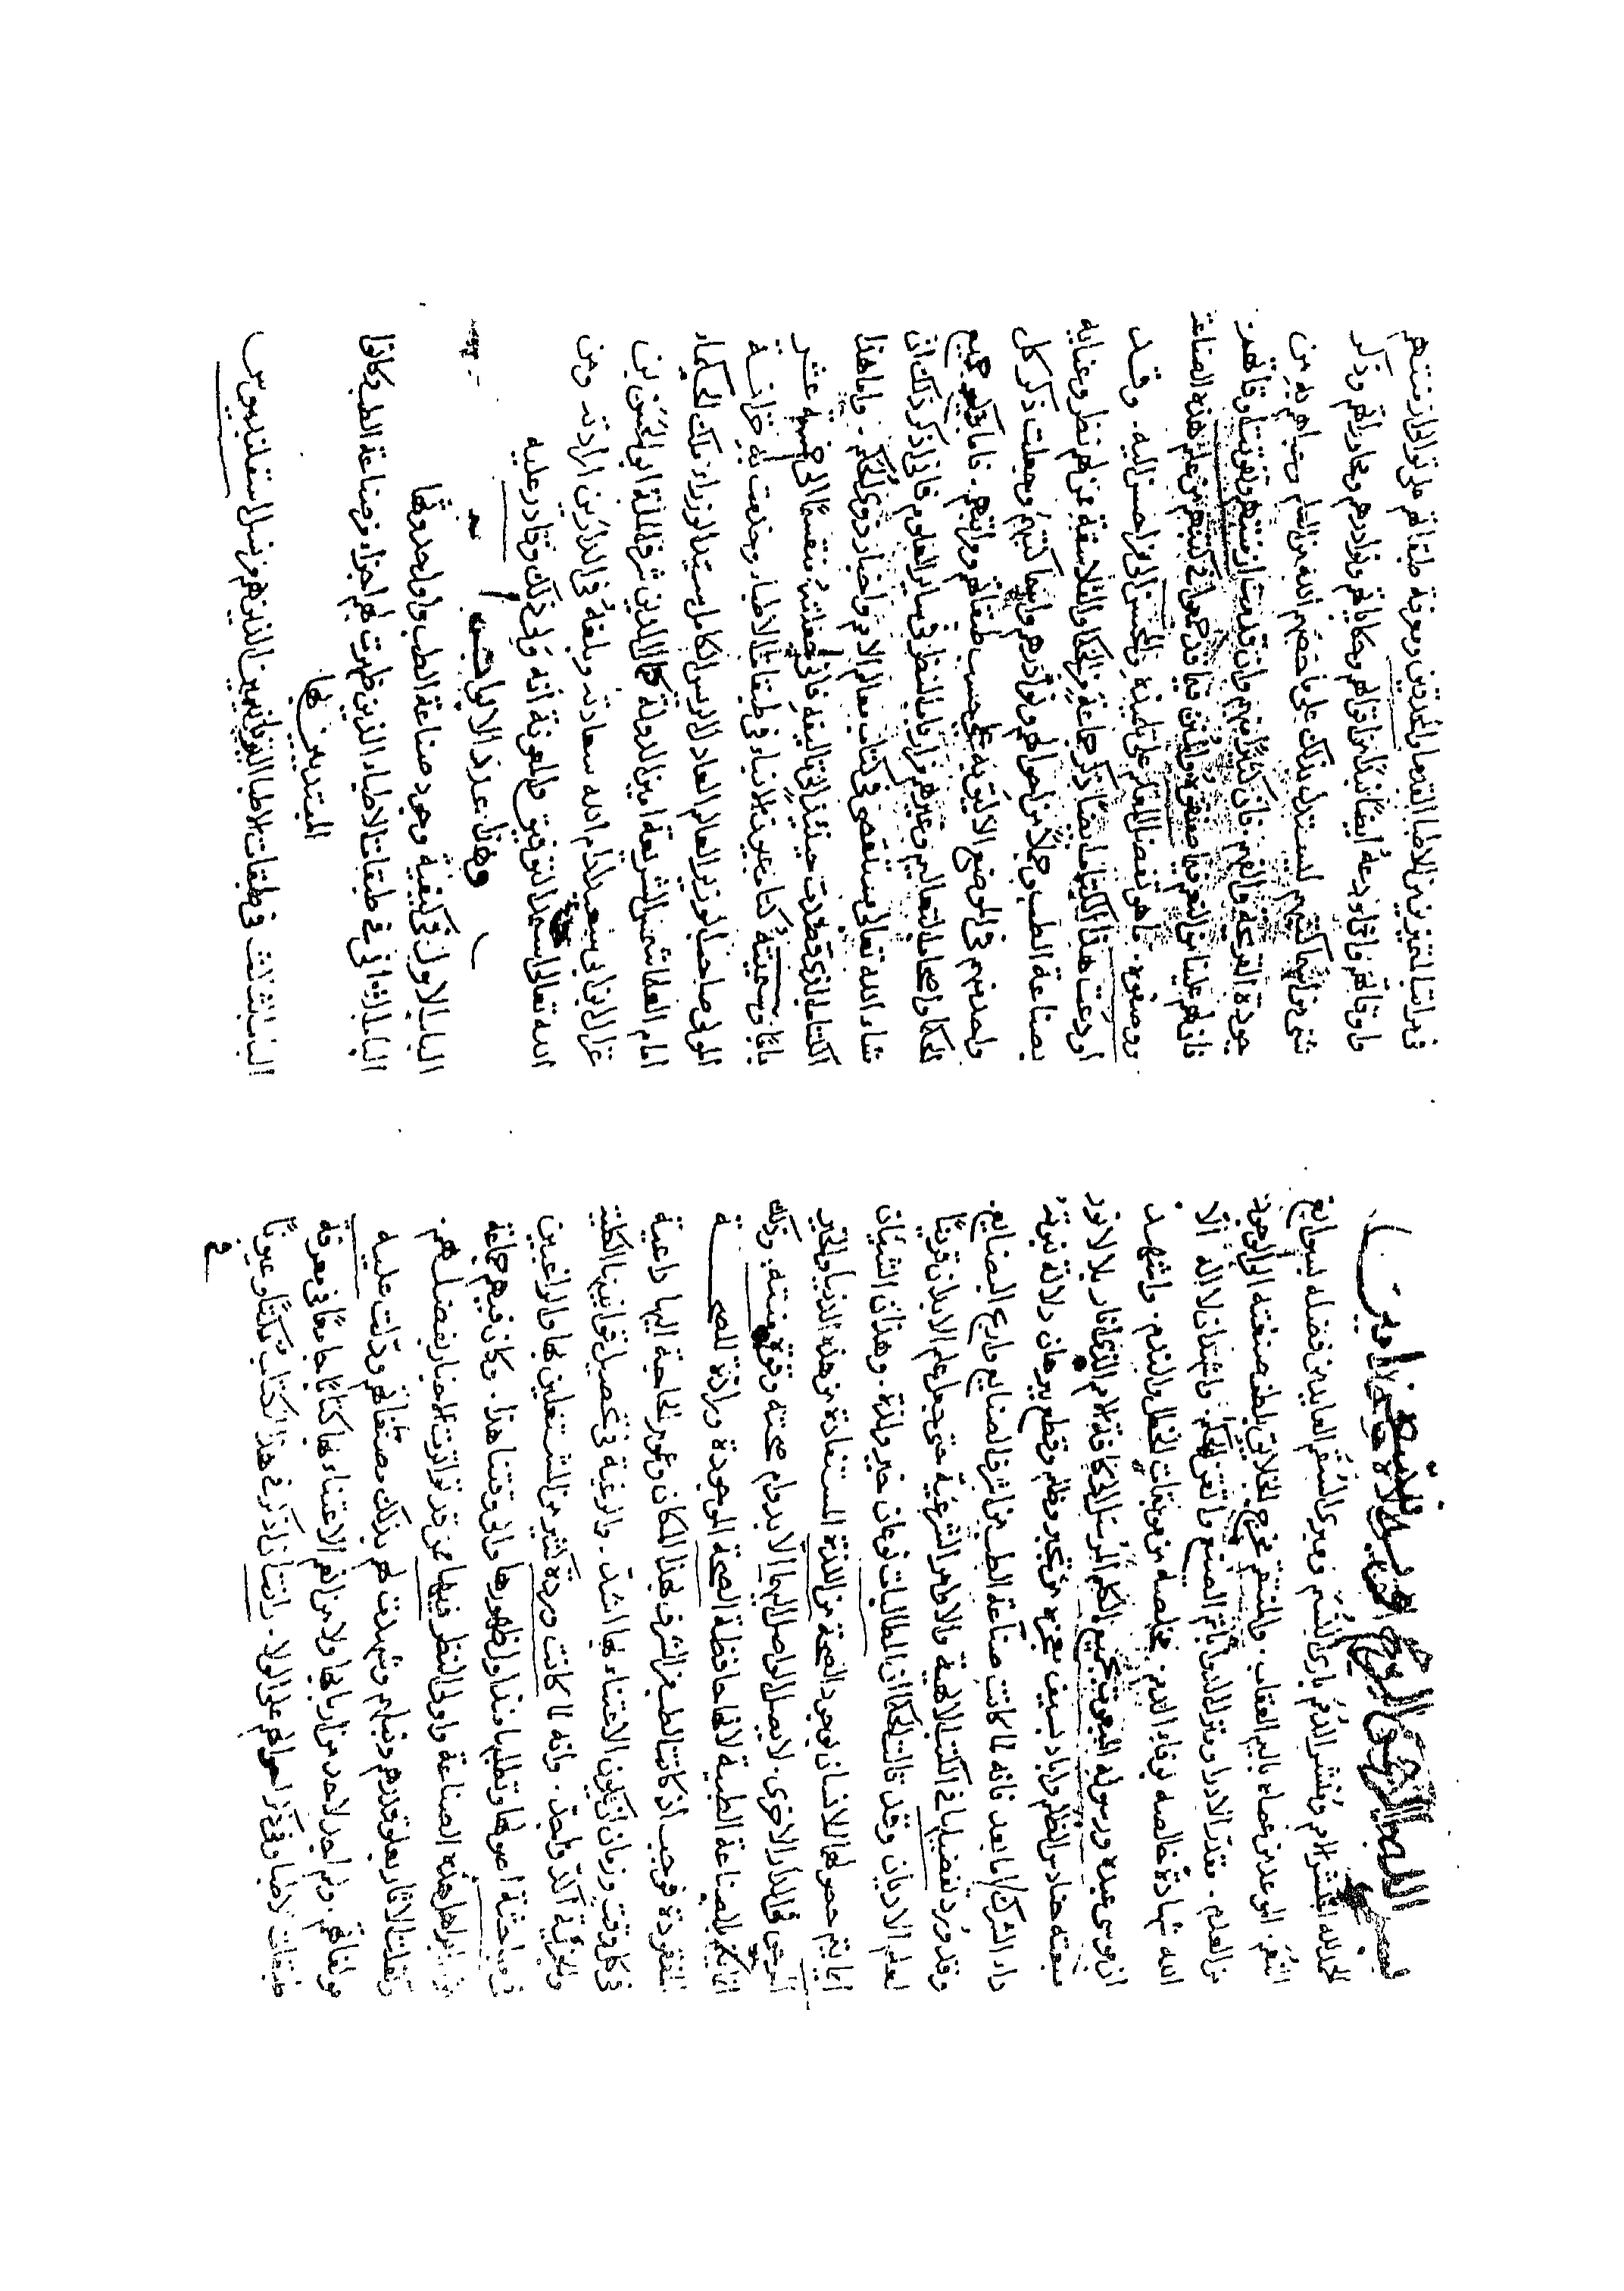 بسم الله الرحمن الرحيم
الحمد لله ناشر الامم ومنشر الرمم بارى النسم ومبرى السقم العايد من فضله بسوابغ
النعم. الموعد من عصاه باليم العقاب. والمنتقم مخرج الخلايق بلطف صنعته الى الوجود
من العدم. مقدر الادوا ومنزل الدوا باتم الصنع واتقن الحكم. واشهد ان لا اله الا
الله شهادة خالصة بوفاء الذمم. مخلصة من موبقات الخطل والندم. واشهد
ان عبده ورسوله المبعوث بجوامع الكلم المرسل الى كافة الامم الذى انار بلالا نور
مبعثه حنادس الظلم واباد بسيف معجزه من تجبر وظلم وقطع ببرهان دلالة نبوته
داء الشرك اما بعد فانه لما كانت صناعة الطب من اشرف الصنايع واربح البضايع
وقد ورد تفضيلها فى الكتب الالهية والاوامر الشرعية حتى جعل علم الابدان قرينا
لعلم الاديان وقد قالت الحكما ان المطالب نوعان خير ولذة. وهذان الشيئان
انما يتم حصولهما للانسان بوجود الصحة لان اللذة المستفادة من هذه الدنيا والخير
المرجى فى الدار الاخرى. لا يصل الواصل اليهما الا بدوام صحته وقوة بنيته. وذلك
انما يتم بالصناعة الطبية لانها حافظة للصحة الموجودة ورادة للصحة
المفقودة فوجب اذ كانت الطب من الشرف بهذا المكان وعموم الحاجة اليها داعية
فى كل وقت وزمان ان يكون الاعتناء بها اشد. والرغبة فى تحصيل قوانينها الكلية
والجزئية آكد واجد. وانه لما كانت وردة كثير من المشتغلين بها والراغبين
فى مباحثة اصولها وتطلبها منذ اول ظهورها والى وقتنا هذا. وكان فيهم جماعة
من اهل هذه الصناعة واولى النظر فيها ممن قد تواترت الاخبار بفضلهم.
ونقلت الاثار بعلو قدرهم ونبلهم وشهدت لهم بذلك مصنفاتهم ودلت عليه
مولفاتهم. ولم اجد لاحد من اربابها ولا من انعم الاعتناء بها كتابا جامعا فى معرفة
طبقات الاطبا وفى ذكر احوالهم على الولا. رايت ان اذكر فى هذا الكتاب نكتا وعيونا
فى
فى مراتب المتميزين من الاطبا القدما والمحدثين ومعرفة طبقاتهم على توالى ازمنتهم
واوقاتهم وان اودعه ايضا نبذا من اقوالهم وحكاياتهم ونوادرهم ومحاوراتهم وذكر
شى من اسما كتبهم ليستدل بذلك على ما خصهم الله من العلم وحباهم به من
جودة القريحة والفهم. فان كثيرا منهم وان قدمت ازمنتهم وتفاوتت اوقاتهم
فان لهم علينا من النعم فيما صنفوه والمنن فيما قد جمعوا فى كتبهم من علم هذه الصناعة
ووضعوه. ما هو تفضل المعلم على تلميذه والمحسن الى من احسن اليه. وقد
اودعت هذا الكتاب ايضا ذكر جماعة من الحكما والفلاسفة ممن لهم نظر وعناية
بصناعة الطب وجملا من احوالهم ونوادرهم واسما كتبهم وجعلت ذكر كل
واحد منهم فى الموضع الاليق به على حسب طبقاتهم ومراتبهم. فاما ذكر جميع
الحكما واصحاب التعاليم وغيرهم من ارباب النظر فى ساير العلوم فانى اذكر ذلك ان
شاء الله تعالى مستقصى فى كتاب معالم الامم واخبار ذوى الحكم. واما هذا
الكتاب الذى قصدت حينئذ الى تاليفه فانى جعلته منقسما الى خمسة عشر
بابا وسميته كتاب عيون الانباء فى طبقات الاطباء وخدمت به خزانة
المولى صاحب الوزير العالم العادل الرئيس الكامل سيد الوزراء ملك الحكماء
امام العلما شمس الشريعة امين الدولة كمال الدين شرف الملة ابى الحسن بن
غزال بن ابى سعيد ادام الله سعادته وبلغه فى الدارين ارادته ومن
الله تعالى استمد التوفيق والمعونة انه ولى ذلك وقادر عليه
وهذا عدد الابواب
الباب الاول فى كيفية وجود صناعة الطب واول حدوثها
الباب الثانى فى طبقات الاطباء الذين ظهرت لهم اجزاء من صناعة الطب وكانوا
المبتدين بها
الباب الثالث فى طبقات الاطبا اليونانيين الذين هم من نسل اسقلبيوس